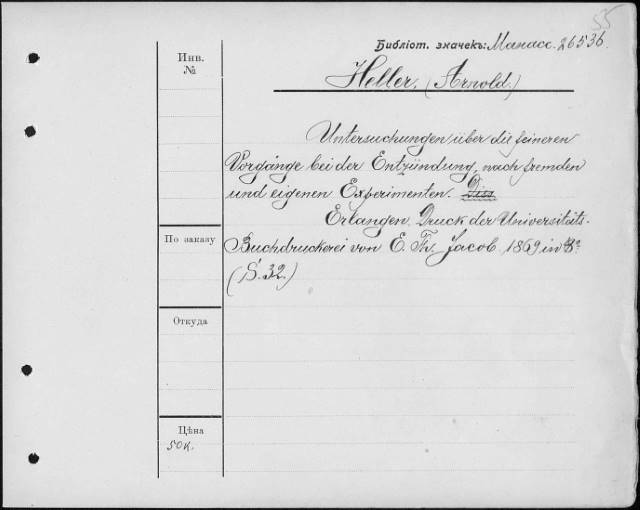 55
Библіот. значекъ: Манасс. 26536.
Инв.
№
Heller, (Arnold.)
Untersuchungen über die feineren
Vorgänge bei der Entzündung, nach fremden
und eigenen Experimenten. Diss
Erlangen, Druck der Universitäts-
По заказу
Buchdruckerei von E. Th. Jacob, 1869 in 8º
(S. 32.)
Откуда
Цѣна
50к.